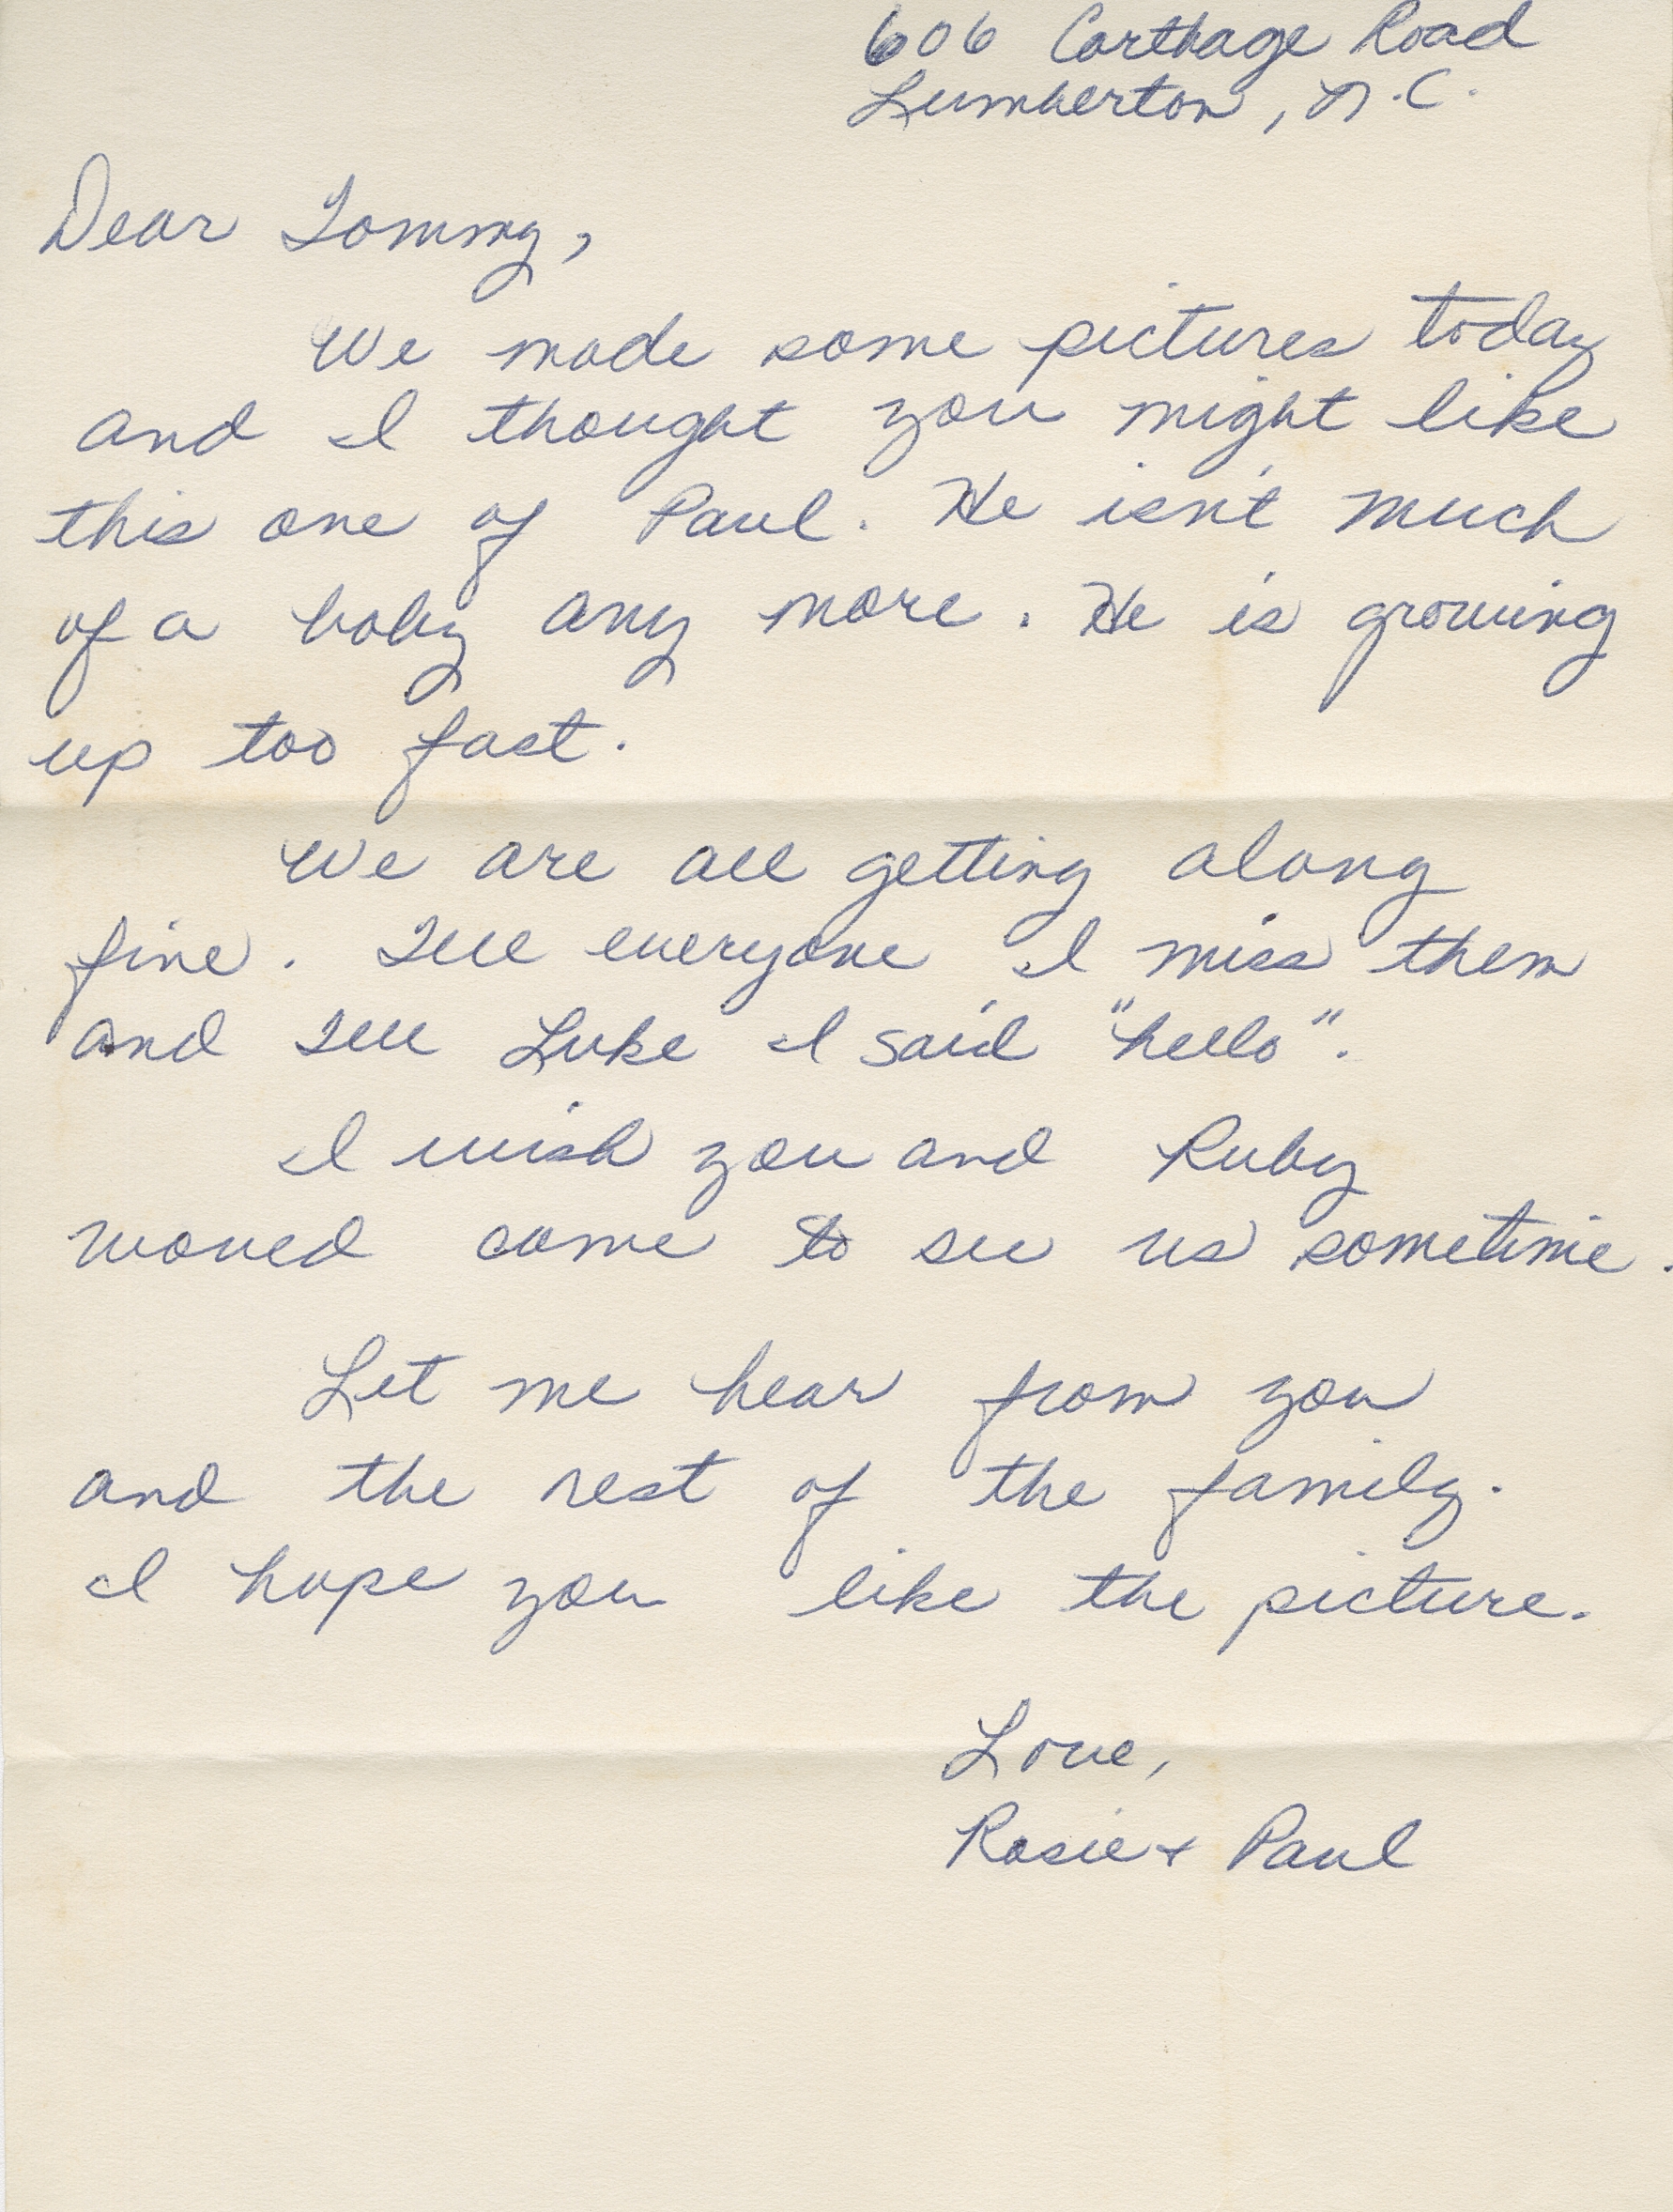 606 Carthage Road
Lumberton, N.C.
Dear Tommy,
We made some pictures today
and I thought you might like
this one of Paul. He isn't much
of a baby any more. He is growing
up too fast.
We are all getting along
fine. Tell everyone I miss them
and tell Luke I said "hello".
I wish you and Ruby
would come to see us sometime.
Let me hear from you
and the rest of the family.
I hope you like the picture.
Love,
Rosie + Paul